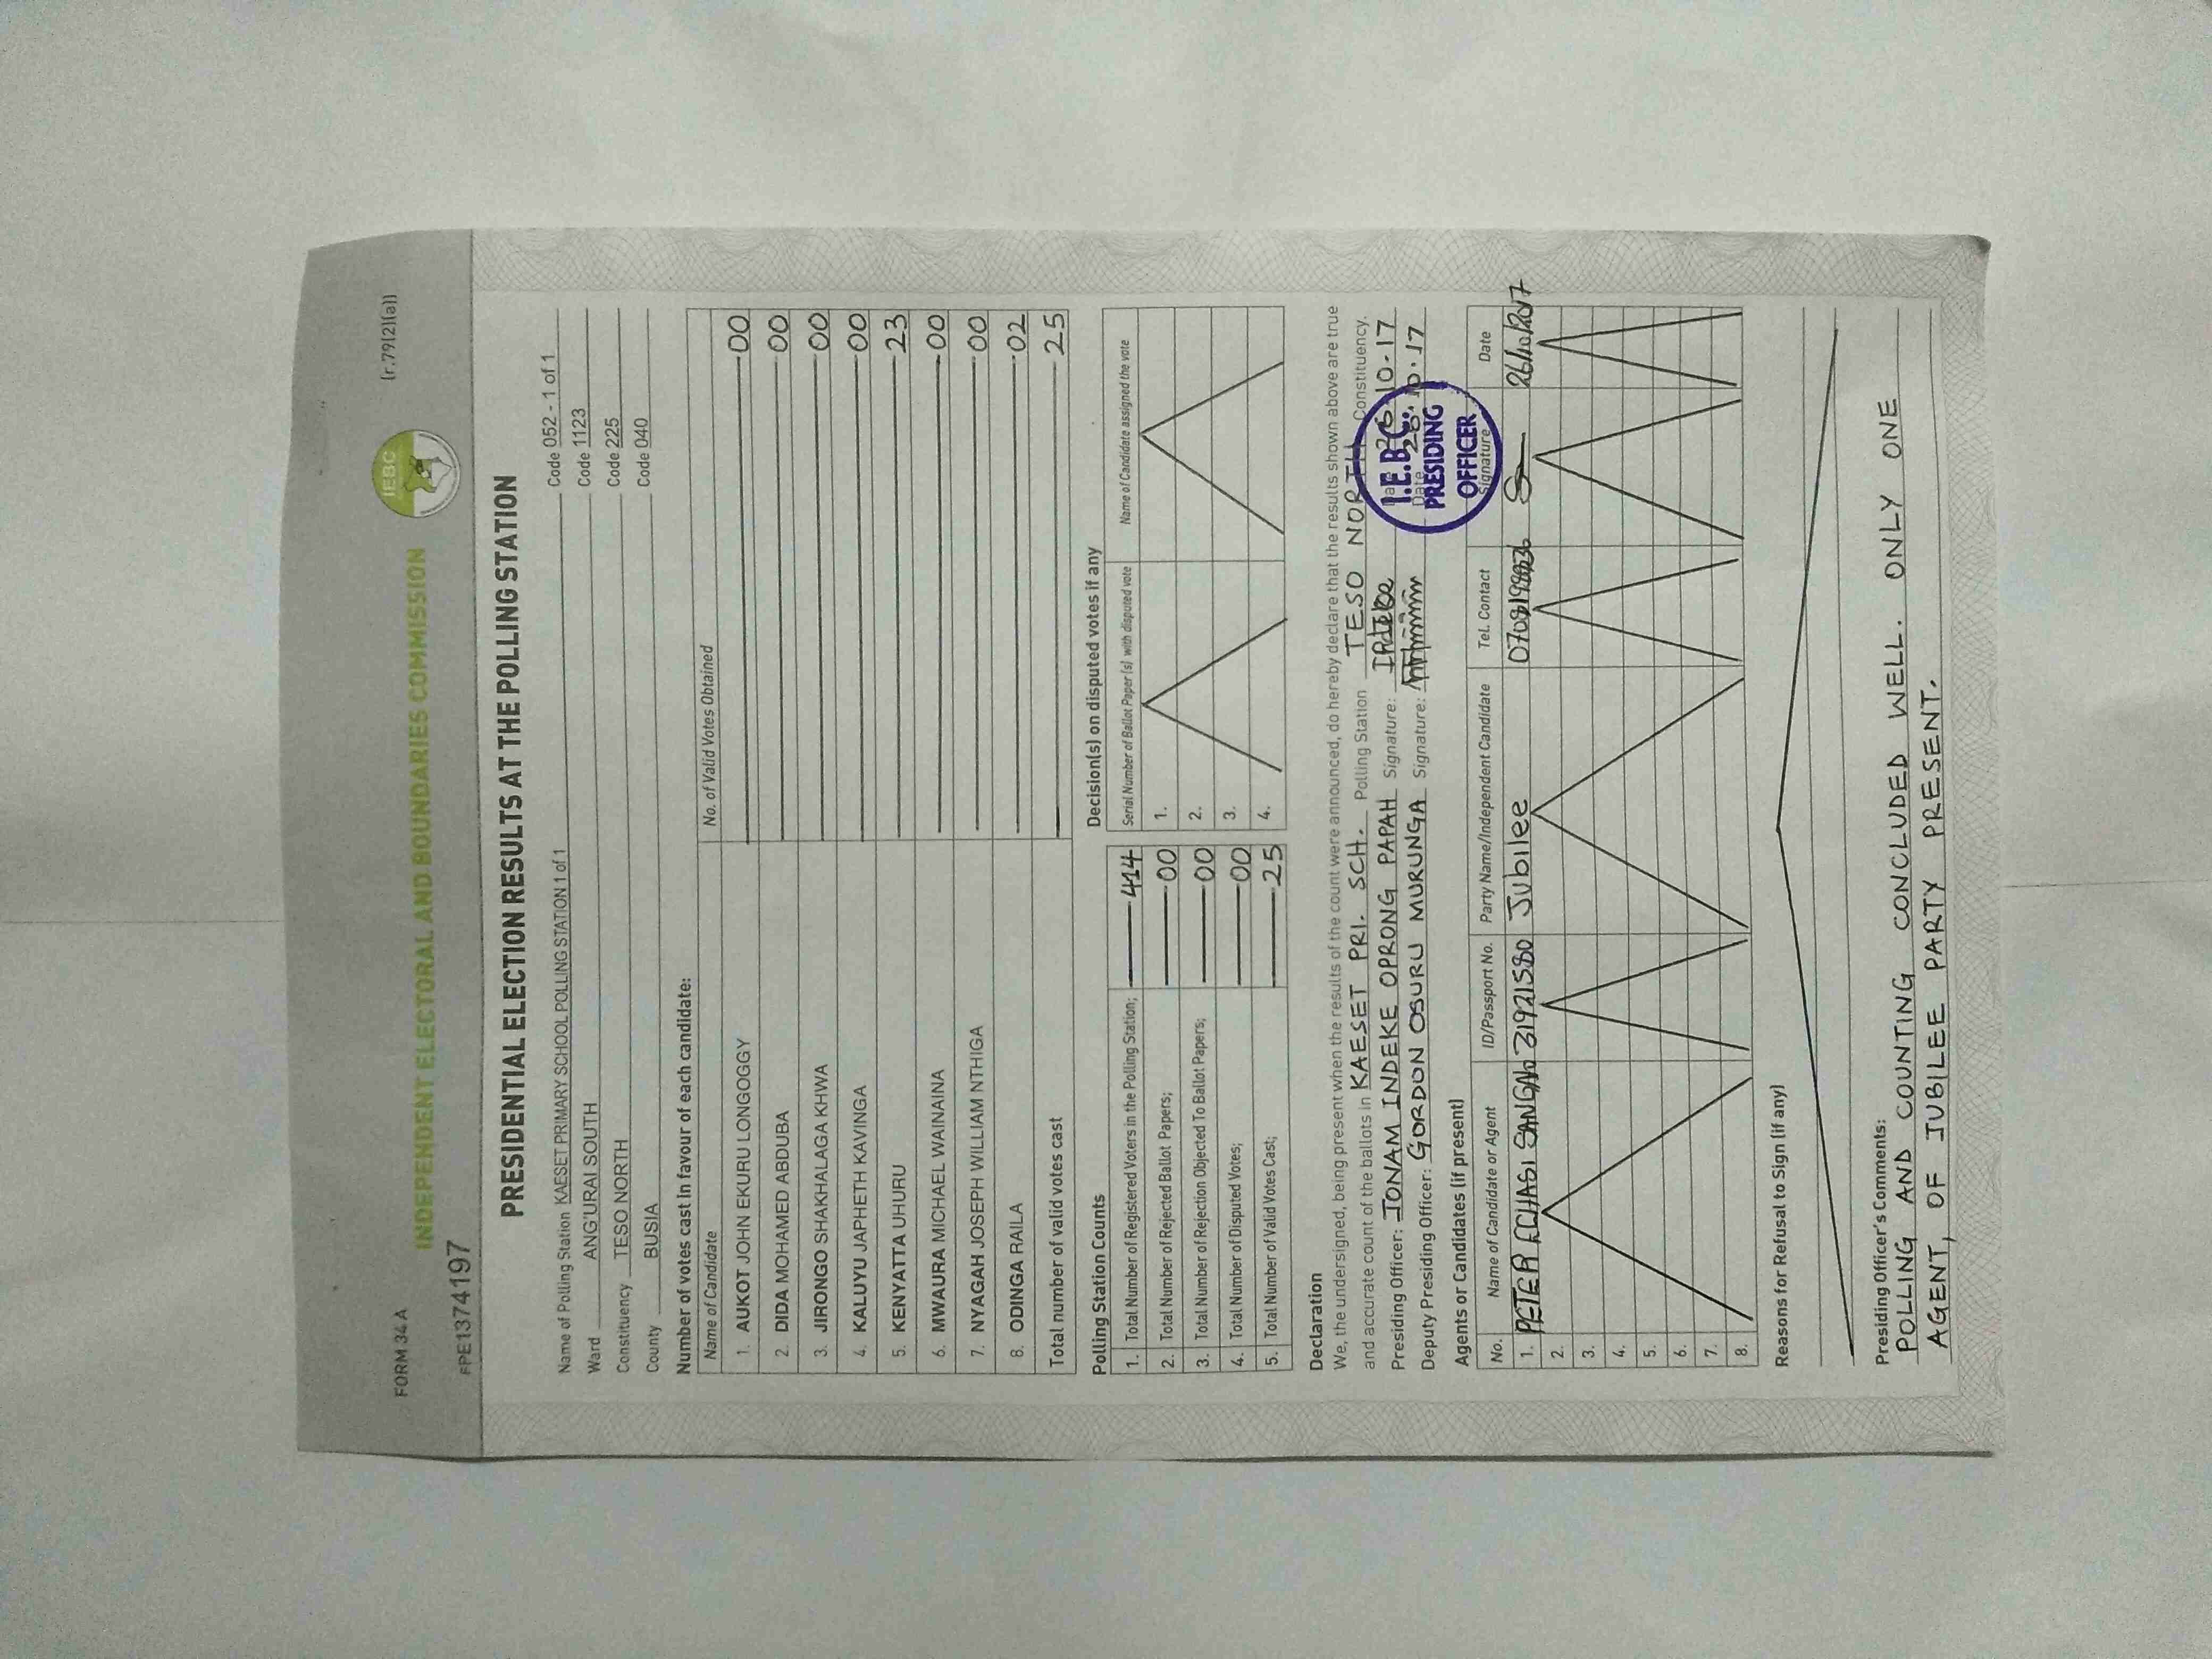 FORM 34 A
(r.79(2)(a))
IEBC
INDEPENDENT ELECTORAL AND BOUNDARIES COMMISSION
FPE1374197
PRESIDENTIAL ELECTION RESULTS AT THE POLLING STATION
Name of Polling Station KAESET PRIMARY SCHOOL POLLING STATION 1 of 1 Code 052 - 1 of 1
Ward ANG'URAI SOUTH Code 1123
Constituency TESO NORTH Code 225
County BUSIA Code 040
Number of votes cast in favour of each candidate:
Name of Candidate No. of Valid Votes Obtained
1. AUKOT JOHN EKURU LONGOGGY 00
2. DIDA MOHAMED ABDUBA 00
3. JIRONGO SHAKHALAGA KHWA 00
4. KALUYU JAPHETH KAVINGA 00
5. KENYATTA UHURU 23
6. MWAURA MICHAEL WAINAINA 00
7. NYAGAH JOSEPH WILLIAM NTHIGA 00
8. ODINGA RAILA 02
Total number of valid votes cast 25
Polling Station Counts
1. Total Number of Registered Voters in the Polling Station; 414
2. Total Number of Rejected Ballot Papers; 00
3. Total Number of Rejection Objected To Ballot Papers; 00
4. Total Number of Disputed Votes; 00
5. Total Number of Valid Votes Cast; 25
Decision(s) on disputed votes if any
Serial Number of Ballot Paper (s) with disputed vote Name of Candidate assigned the vote
1.
2.
3.
4.
Declaration
We, the undersigned, being present when the results of the count were announced, do hereby declare that the results shown above are true
and accurate count of the ballots in KAESET PRI. SCH. Polling Station TESO NORTH Constituency.
Presiding Officer: JONAM INDEKE OPRONG PAPAH Signature: Date 26-10-17
Deputy Presiding Officer: GORDON OSURU MURUNGA Signature: Date 26.10.17
I.E.B.C.
PRESIDING
OFFICER
Agents or Candidates (if present)
No. Name of Candidate or Agent ID/Passport No. Party Name/Independent Candidate Tel. Contact Signature Date
1. PETER 31921580 Jubilee 26/10/2017
2.
3.
4.
5.
6.
7.
8.
Reasons for Refusal to Sign (if any)
Presiding Officer's Comments:
POLLING AND COUNTING CONCLUDED WELL. ONLY ONE
AGENT, OF JUBILEE PARTY PRESENT.